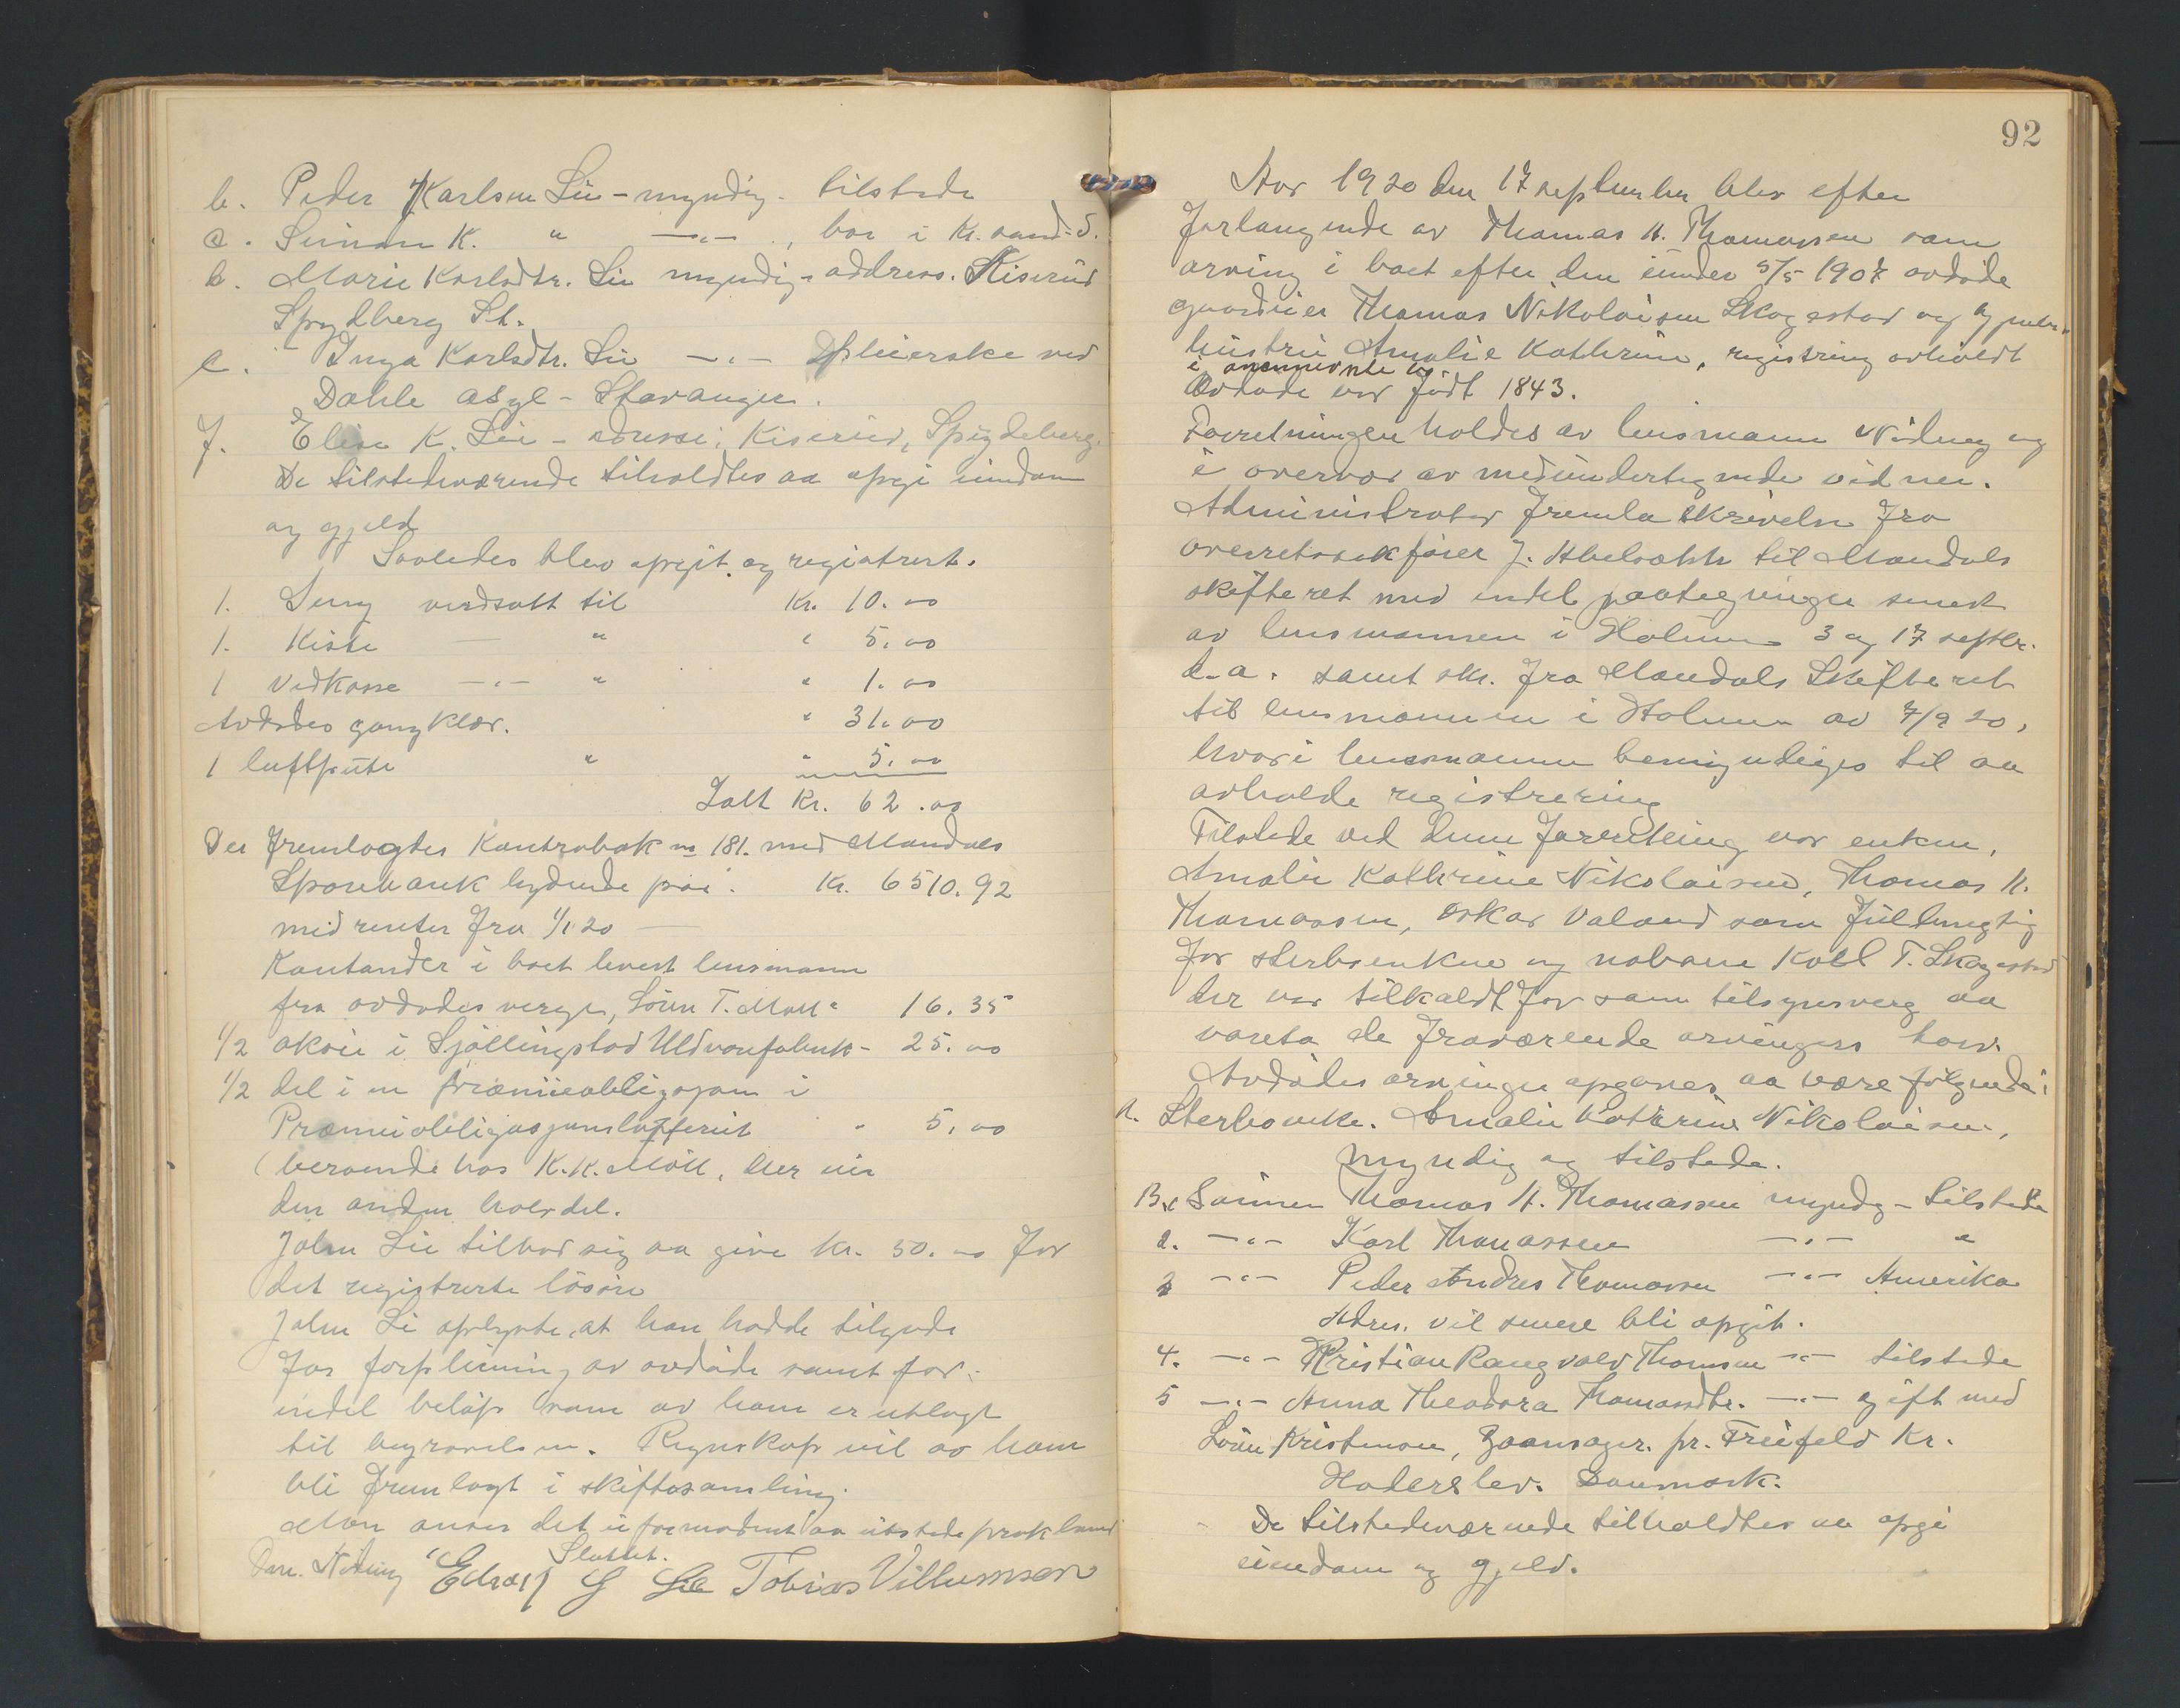 b. Peder Karlsen Lie - myndig - tilstede
c. Simon K. " -"- , bor i Kr.sand. S.
d. Marie Karlsdtr. Lie myndig - address. Kiserud
Spydberg St.
e. Inga Karlsdtr. Lie -"- Pleierske ved
Dahle asyl - Stavanger.
f. Elise K. Lie - adresse: Kiserud, Spydeberg.
De tilstedeværende tilholdtes aa opgi eiendom
og gjeld
Saaledes blev opgit og registrert.
1. Seng verdsatt til Kr. 10.00
1. Kiste - " " 5.00
1 Vedkasse -"- " " 1.00
Avdødes gangklær. " 31.00
1 luftpute " " 5.00
Ialt Kr. 62.00
Der fremlagdes Kontrabok no 181. med Mandals
Sparebank lydende paa. Kr. 6510.92
med renter fra 1/1 20
Kontanter i boet levert lensmann
fra avdødes verge, Sören T. Moll " 16.35
1/2 aksie i Sjöllingstad Uldvarefabrik - 25.00
1/2 del i en præmieobligasjon i
Præmieobligasjonslotteriet " 5.00
(beroende hos K.K. Möll, der eier
den anden halvdel.
John Lie tilbød sig aa give kr. 50.00 for
det registrerte lösöre
John Li oplyste, at han hadde tilgode
for forpleining av avdøde samt for
endel beløp som av ham er utlagt
til begravelsen. Regnskap vil av ham
bli fremlagt i skiftesamling.
Man anser det uformodent aa utstede proklama
Sluttet.
Dan. Nödung Edvart G Lie Tobias Villumsen
92
Aar 1920 den 17 september blev efter
forlangende av Thomas N. Thomassen som
arving i boet efter den under 5/5 1907 avdøde
gaardeier Thomas Nikolaisen Skogestad og gjenlev.
hustru Amalie Kathrine, registrering avholdt
i ovennevnte bo
Avdøde var født 1843.
Forretningen holdes av lensmann Nödung og
i overvær av medundertegnede vidner.
Administrator fremla skrivelse fra
overretssakfører J. Abelseth til Mandals
skifteret med endel paategninger senest
av lensmannen i Holum 3 og 17 septbr.
d.a. samt skr. fra Mandals Skifteret
til lensmannen i Holum av 7/9 20,
hvori lensmannen bemyndiges til aa
avholde registrering
Tilstede ved denne forretning var enken,
Amalie Kathrine Nikolaisen, Thomas N.
Thomassen, Oskar Valand som fuldmegtig
for sterboenken og naboen Karl T. Skogestad
der var tilkaldt for som tilsynsverg aa
vareta de fraværende arvingers tarv.
Avdødes arvinger opgaves aa være følgende:
A. Sterboenke. Amalie Kathrine Nikolaisen,
myndig og tilstede.
B. 1 Sönnen Thomas N. Thomassen myndig - tilstede
2. -"- Karl Thomassen -"- "
3 -"- Peder Andres Thomassen -"- Amerika
Adres. vil senere bli opgit.
4. -"- Kristian Rangvald Thomsen -"- tilstede
5 -"- Anna Theodora Thomasdtr. -"- gift med
Sören Kristensen, pr. Kr.
Haderslev. Danmark.
- De tilstedeværende tilholdtes aa opgi
eiendom og gjeld.